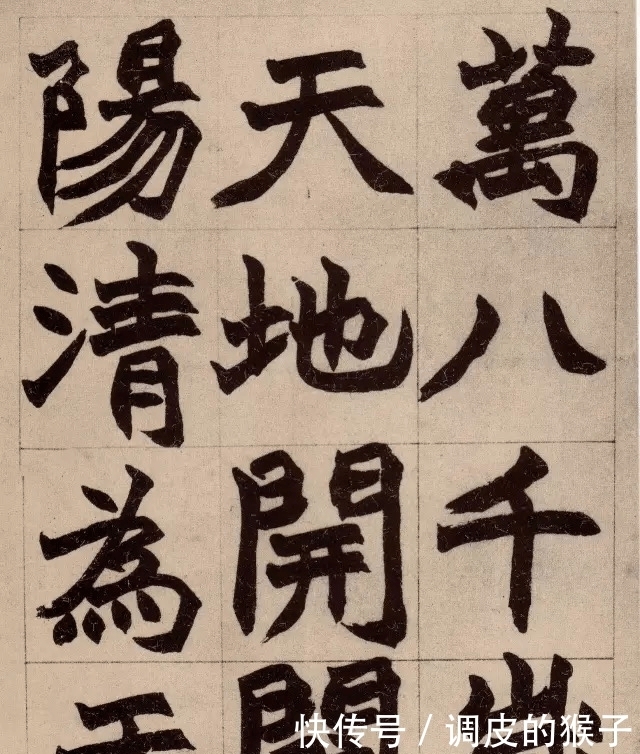 萬八千
天地開
陽清為天
快传号 / 调皮的猴子